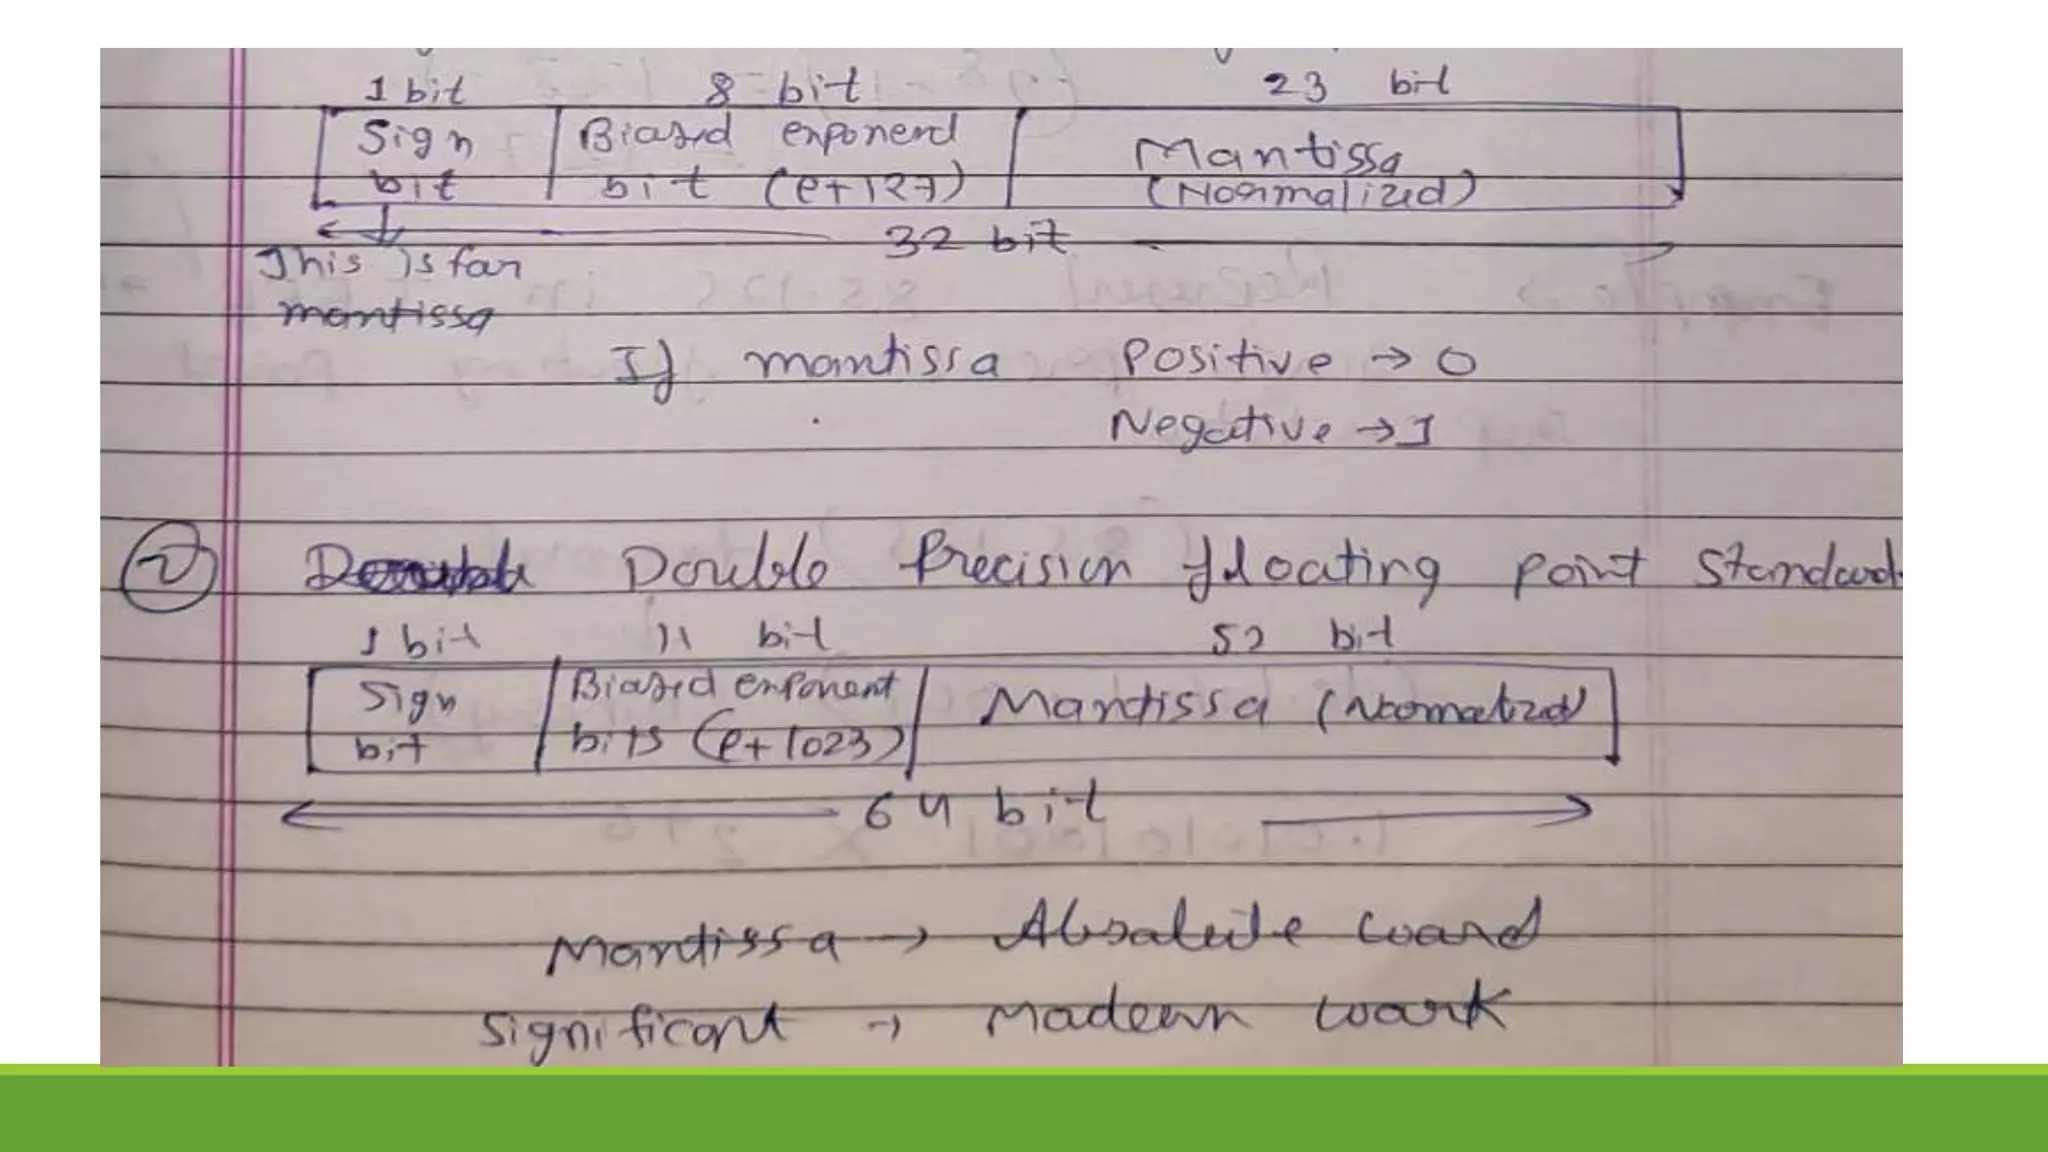 1 bit 8 bit 23 bit
Sign Biased exponent Mantissa
bit bit (e+127) (Normalized)
32 bit
This is for
mantissa
If mantissa Positive → 0
Negative → 1
2 Double Precision floating point Standard
1 bit 11 bit 52 bit
Sign Biased exponent Mantissa (Normalized)
bit bits (e+1023)
64 bit
Mantissa → Absalute word
Significant → Madern work